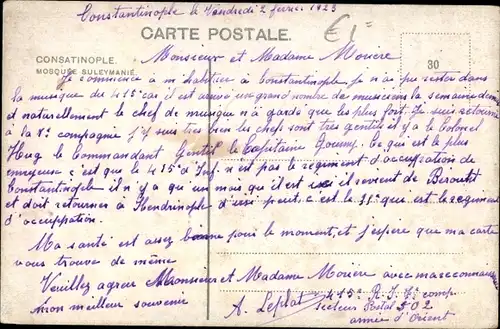 Constantinople le Vendredi 2 fevrier 1923
€ 1=
CARTE POSTALE.
Monsieur et Madame Mouëre
CONSATINOPLE.
MOSQUÉE SULEYMANIÉ.
30
Je commence à m'habituer à Constantinople je n'ai pu rester dans
la musique du 415e car il est arrivé une grand nombre de musiciens la semaine dern
et naturellement le chef de musique n'a gardé que les plus fort. Je suis retourné
à la compagnie j'y suis très bien les chefs sont très gentils il y a le Colonel
Hug le Commandant Gentil le capitaine Goumy. Ce qui est le plus
ennuyeux c'est que le 415e d'Inf. n'est pas le regiment d'occupation de
Constantinople il n'y a qu'un mois qu'il est ici il revient de
et doit retourner à d'ici peut, c'est le 31e qui est le regiment
d'occupation.
Ma santé est assez bonne pour le moment, et j'espere que ma carte
vous trouve de même
Veuillez agreer Monsieur et Madame Mouëre avec ma reconnaiss
mon meilleur souvenir
A. Leplat 415e R.I. comp
Secteur Postal 502
armée d'Orient